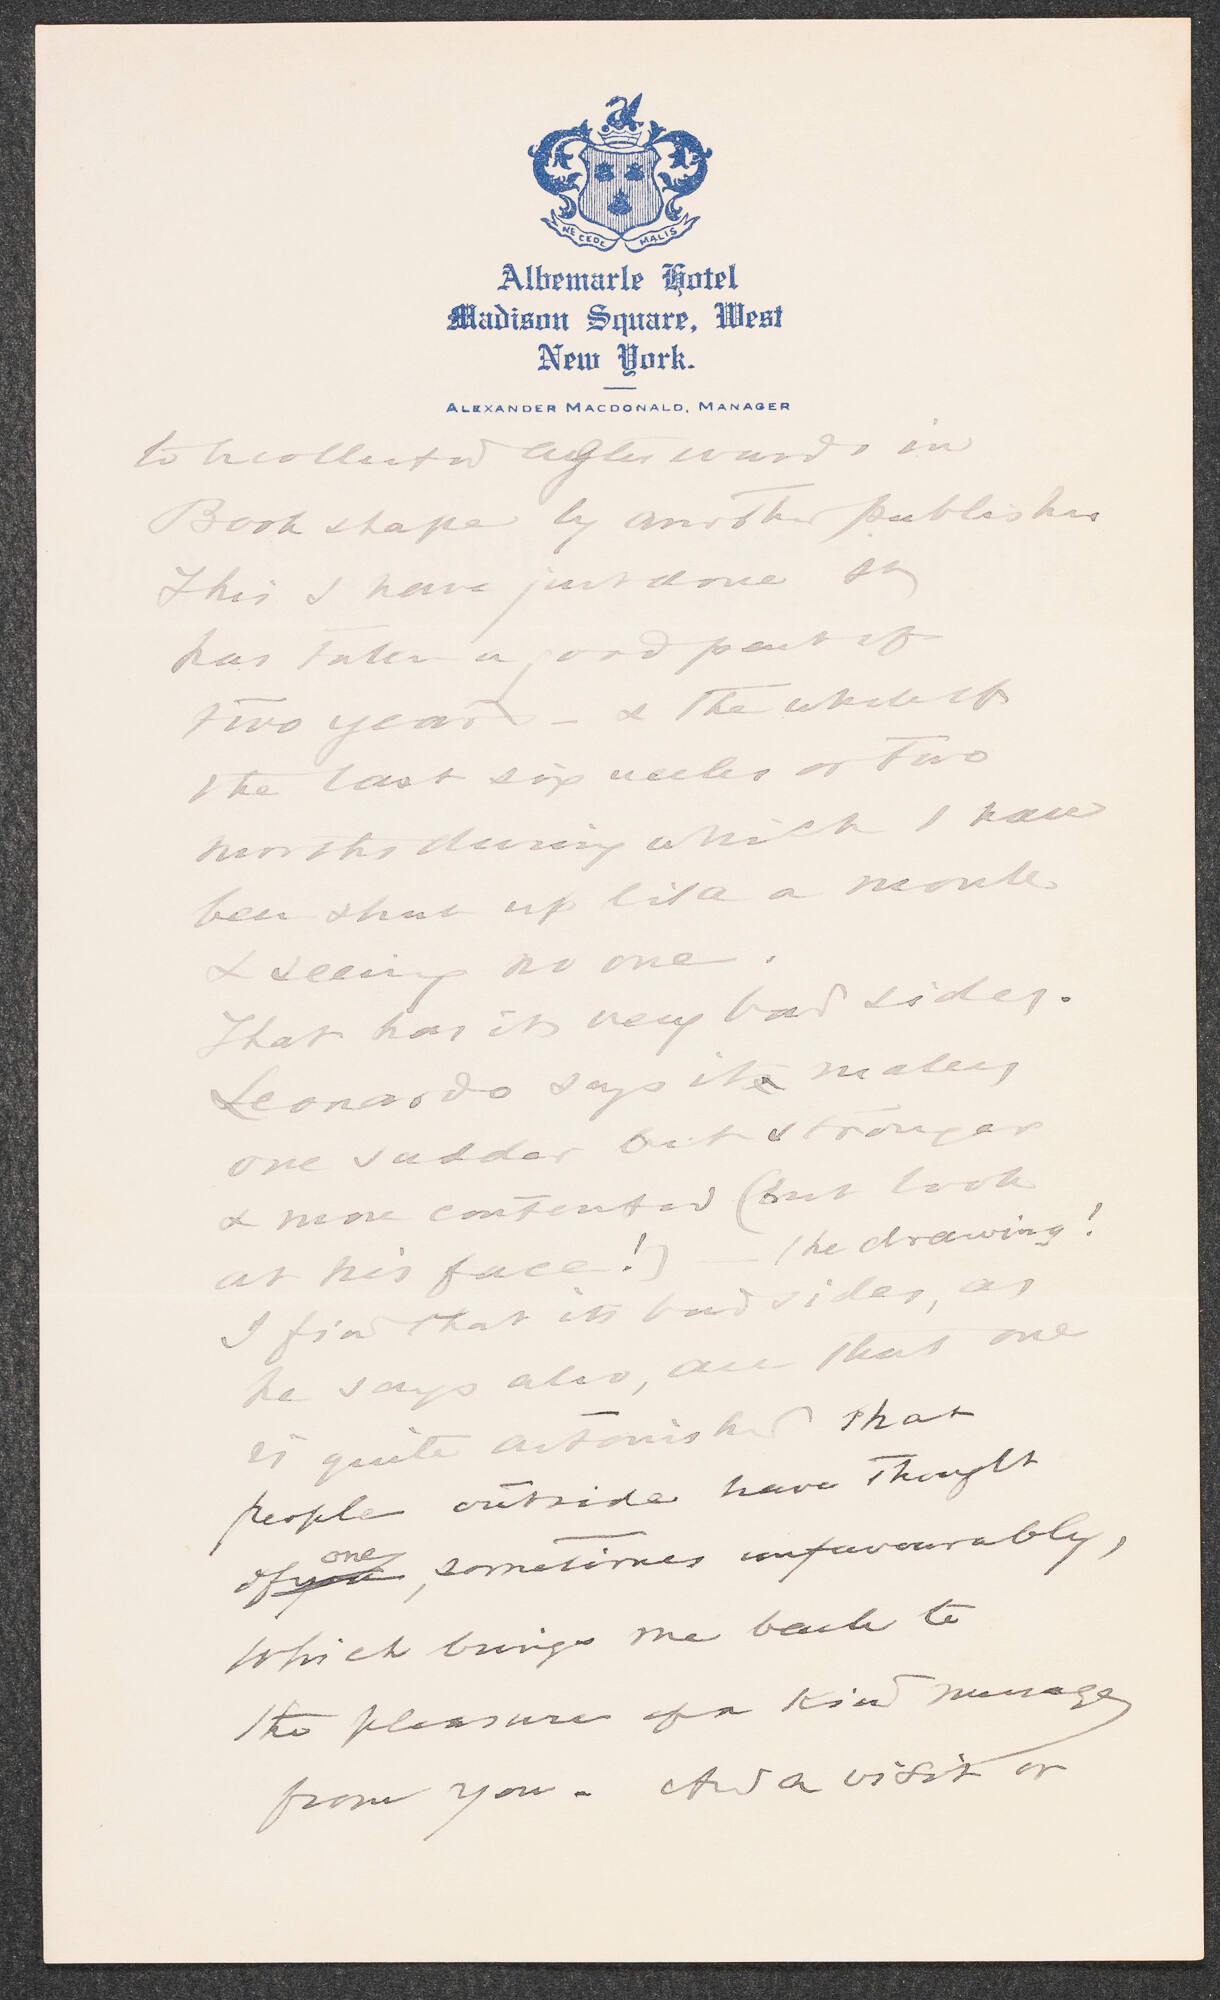 NE CEDE MALIS
Albemarle Hotel
Madison Square, West
New York.
ALEXANDER MACDONALD, MANAGER
to be collected afterwards in
Book shape by another publisher
This I have just done
has taken a good part of
two years – & the whole of
the last six weeks or two
months during which I have
been shut up like a monk
& seeing no one.
That has its very bad sides.
Leonardo says it makes
one sadder but stronger
& more contented (but look
at his face!) — the drawing!
I find that its bad sides, as
he says also, are that one
is quite astonished that
people outside have thought
of you one, sometimes unfavourably,
which brings me back to
the pleasure of a kind message
from you. And a visit or